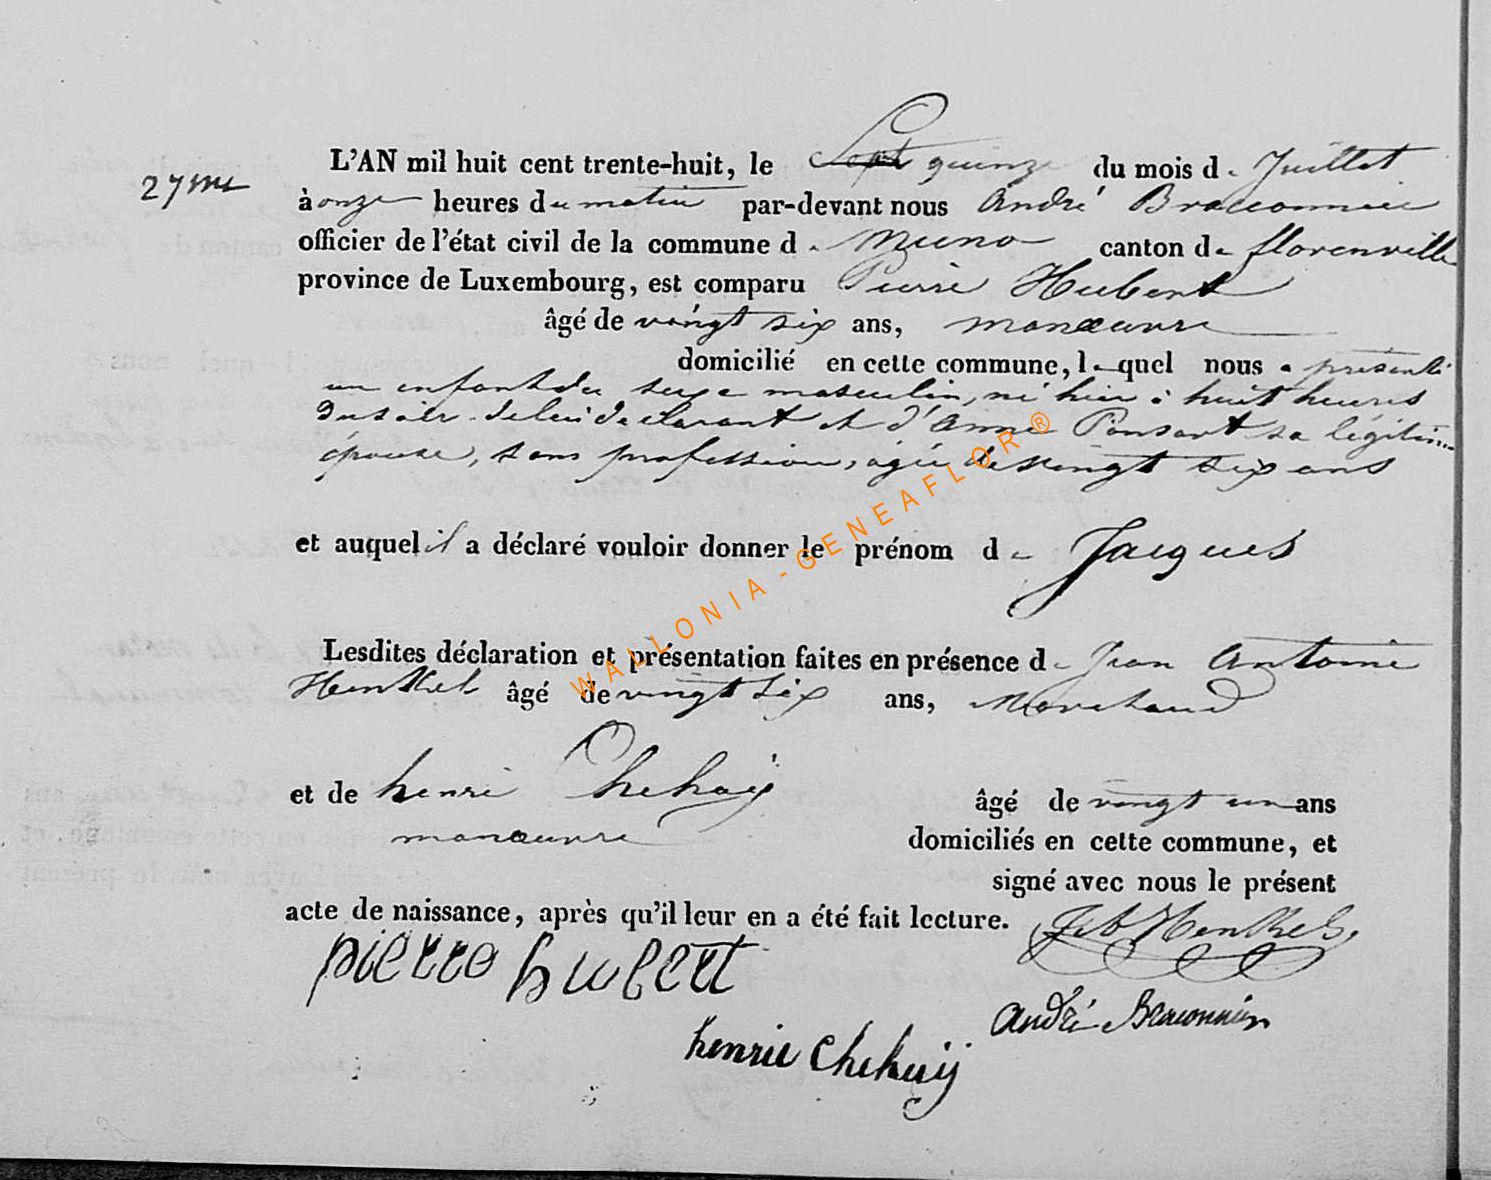 27me
L'AN mil huit cent trente-huit, le Sept quinze du mois de Juillet
à onze heures du matin par-devant nous André Braconnier
officier de l'état civil de la commune de Muno canton de florenville
province de Luxembourg, est comparu Pierre Hubert
âgé de vaingt six ans, manœuvre
domicilié en cette commune, lequel nous a présenté
un enfant du sexe masculin, né hier à huit heures
du soir de lui déclarant et d'Anne Ponsart sa légitime
épouse, sans profession, agée de vingt six ans
et auquel il a déclaré vouloir donner le prénom de Jacques
Lesdites déclaration et présentation faites en présence de Jean Antoine
Henkel âgé de vingt six ans, Marchand
et de henri Chehoÿ âgé de vingt un ans
manœuvre domiciliés en cette commune, et
signé avec nous le présent
acte de naissance, après qu'il leur en a été fait lecture. Henkel
pierre hubert
André Braconnier
henrie Chehuij
WALLONIA - GENEAFLOR ®